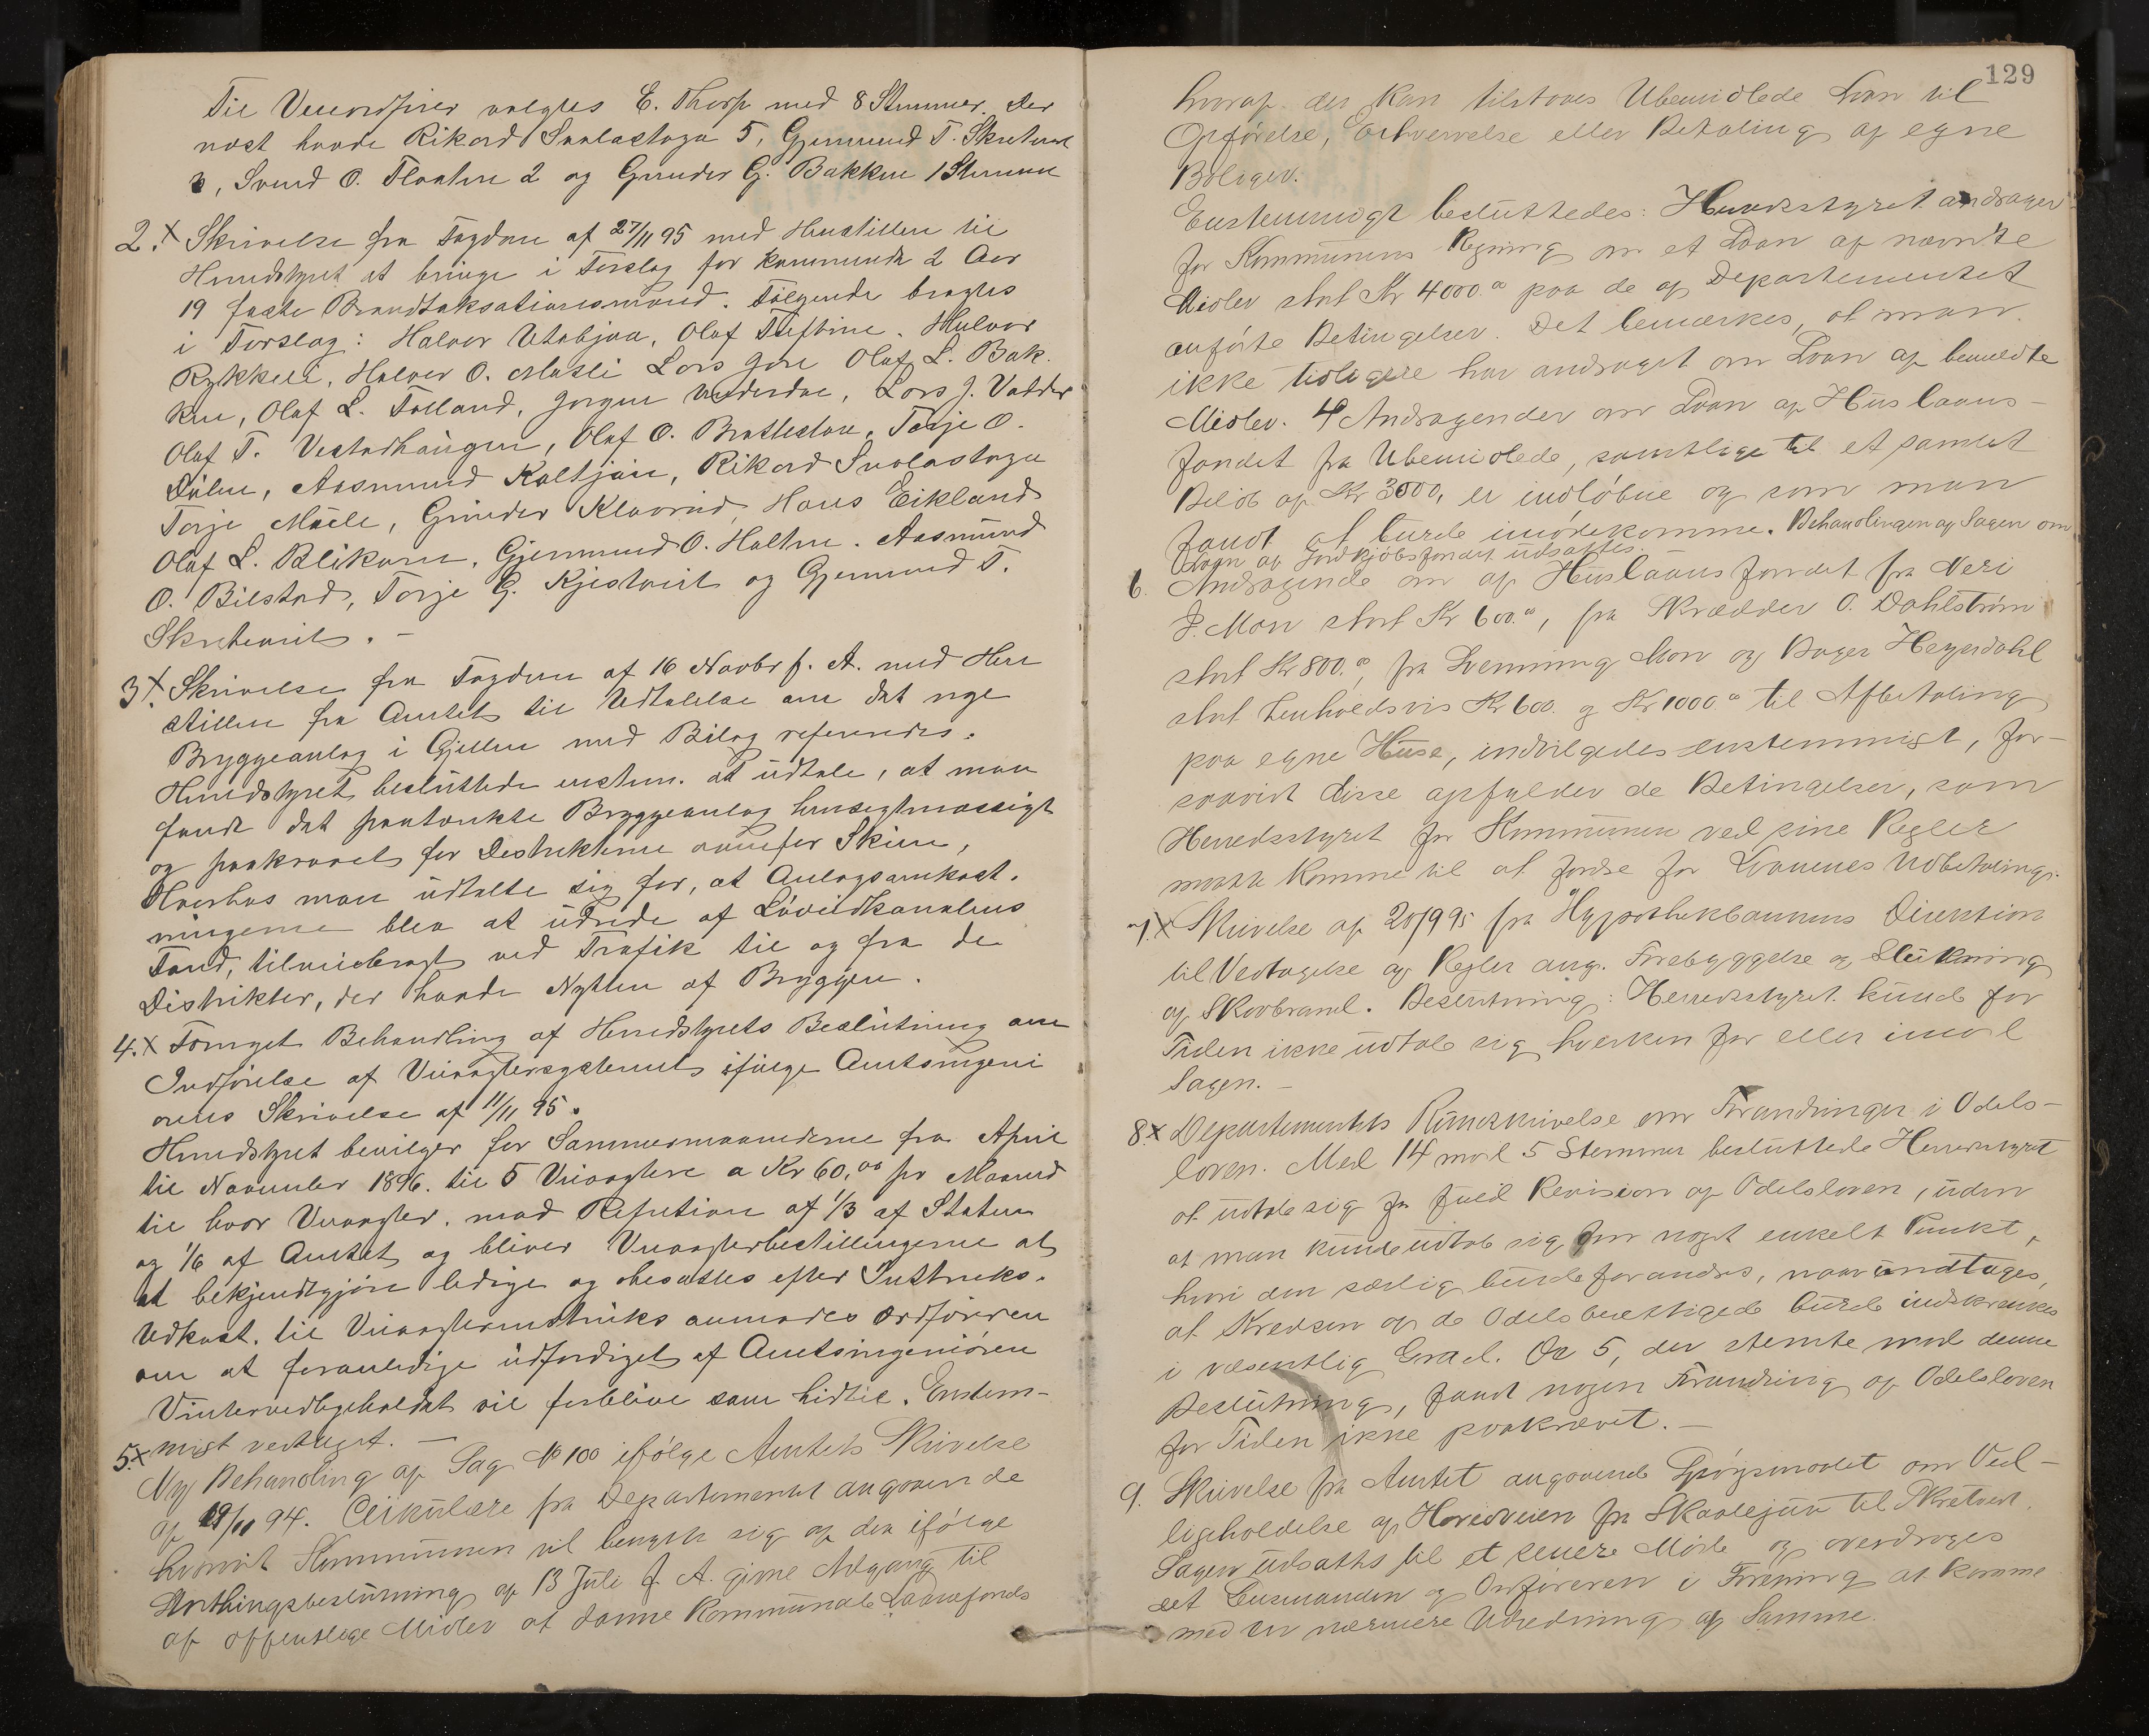 Til Viceordfører valgtes E. Thorp med 8 Stemmer. Der
næst havde Rikard Svalastoga 5, Gjermund T. Skretveit
3, Svend O. Flaaten 2 og Gunder G. Bakken 1 Stemme
2. x Skrivelse fra Fogden af 27/11 95 med Henstillen til
Herredstyret at bringe i Forslag for kommende 2 Aar
19 faste Brandtaksationsmænd. Følgende bragtes
i Forslag: Halvor Utabjaa, Olaf Tveftene. Halvor
Rykkeli, Halvor O. Masli Lars Gjore Olaf L. Bak-
ken, Olaf L. Folland, Jørgen Vederdae, Lars J. Vadder
Olaf T. Vestadhaugen, Olaf O. Brattestøe, Torje O.
Dalen, Aasmund Kaltjøn, Rikard Svalastoga
Torje Mæle, Gunder Klovrud, Hans Eikland
Olaf L. Blikom, Gjermund O. Halten. Aasmund
O. Bilstad, Torje G. Kjestveit og Gjermund T.
Skretveit. –
3. x Skrivelse fra Fogden af 16 Novbr f. A. med Hen
stillen fra Amtet til Udtalelse om det nye
Bryggeanlæg i Gjellen med Bilag refereredes.
Herredstyret besluttede enstem. at udtale, at man
fandt det paatænkte Bryggeanlæg hensigtmæssigt
og paakrævet for Distrikterne ovenfor Skien,
Hvorhos man udtalte sig for, at Anlægsomkost-
ningerne blev at udrede af Løveidkanalens
Fond, tilveiebragt ved Trafik til og fra de
Distrikter, der havde Nytten af Bryggen.
4. x Fornyet Behandling af Herredstyrets Beslutning om
Indførelse af Veivogtersystemet ifølge Amtsingeni
ørens Skrivelse af 11/11 95.
Herredstyret bevilger for Sommermaanederne fra April
til November 1896. til 5 Veivogtere a Kr 60,00 pr Maaned
til hver Veivogter, mod Refution af 1/3 af Staten
og 1/6 af Amtet og bliver Veivogterbestillingerne at
at bekjendtgjøre ledige og besættes efter Instruks.
Udkast til Veivogterinstruks anmodes Ordføreren
om at foranledige udfærdiget af Amtsingeniøren
Vintervedligeholdet vil forblive som hidtil. Enstem-
migt vedtaget. –
5. x Ny Behandling af Sag No 100 ifølge Amtets Skrivelse
af 29/11 94. Cirkulære fra Departementet angaaende
hvorvidt Kommunen vil benytte sig af den ifølge
Storthingsbeslutning af 13 Juli f. A. givne Adgang til
af offentlige Midler at danne Kommunale Laanefonds
129
hvoraf der kan tilstaaes Ubemidlede Laan til
Opførelse, Erhvervelse eller Betaling af egne
Boliger.
Enstemmigt besluttedes: Herredsstyret andrager
for Kommunens Regning om et Laan af nævnte
Midler stort Kr 4000.00 paa de af Departementet
anførte Betingelser. Det bemærkes, at man
ikke tidligere har andraget om Laan af bemeldte
Midler. 4 Andragender om Laan af Huslaans-
fondet fra Ubemidlede, samtlige til et samlet
Beløb af Kr 3000, er indløbne og som man
fandt at burde imødekomme. Behandlingen af Sagen om
Laan af Jordkjøbsfondet udsattes.
6. Andragende om af Huslaansfondet fra Neri
J. Moen stort Kr 600.00, fra Skrædder O. Dahlstrøm
stort Kr 800.00, fra Svenning Moen og Bager Heyerdahl
stort henholdsvis Kr 600. og Kr 1000.00 til Afbetaling
paa egne Huse, indvilgedes enstemmigt, for-
saavidt disse opfylder de Betingelser, som
Herredsstyret for Kommunen ved sine Regler
maatte komme til at fordre for Laanenes Udbetaling.
7. x Skrivelse af 20/9 95 fra Hypothekbankens Direktion
til Vedtagelse af Regler ang. Forebyggelse og Slukning
af Skovbrand. Beslutning: Herredsstyret kunde for
Tiden ikke udtale sig hverken for eller imod
Sagen. –
8. x Departementets Rundskrivelse om Forandringer i Odels-
loven. Med 14 mod 5 Stemmer besluttede Herredsstyret
at udtale sig for fuld Revision af Odelsloven, uden
at man kunde udtale sig om noget enkelt Punkt,
hvori den særlig burde forandres, naar undtages,
at Kredsen af de Odelsberettigede burde indskrænkes
i væsentlig Grad. De 5, der stemte mod denne
Beslutning, fandt nogen Forandring af Odelsloven
for Tiden ikke paakrævet. –
9. Skrivelse fra Amtet angaaende Spørgsmaalet om Ved-
ligeholdelse af Hovedveien fra Skaalejuv til Skretveit.
Sagen udsattes til et senere Møde og overdroges
det Lensmanden og Ordføreren i Forening at komme
med en nærmere Udredning af Samme.